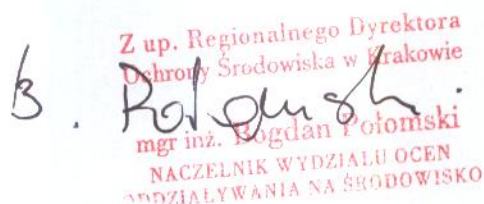 Z up. Regionalnego Dyrektora
Ochrony Środowiska w Krakowie
B. Połomski.
mgr inż. Bogdan Połomski
NACZELNIK WYDZIAŁU OCEN
ODDZIAŁYWANIA NA ŚRODOWISKO